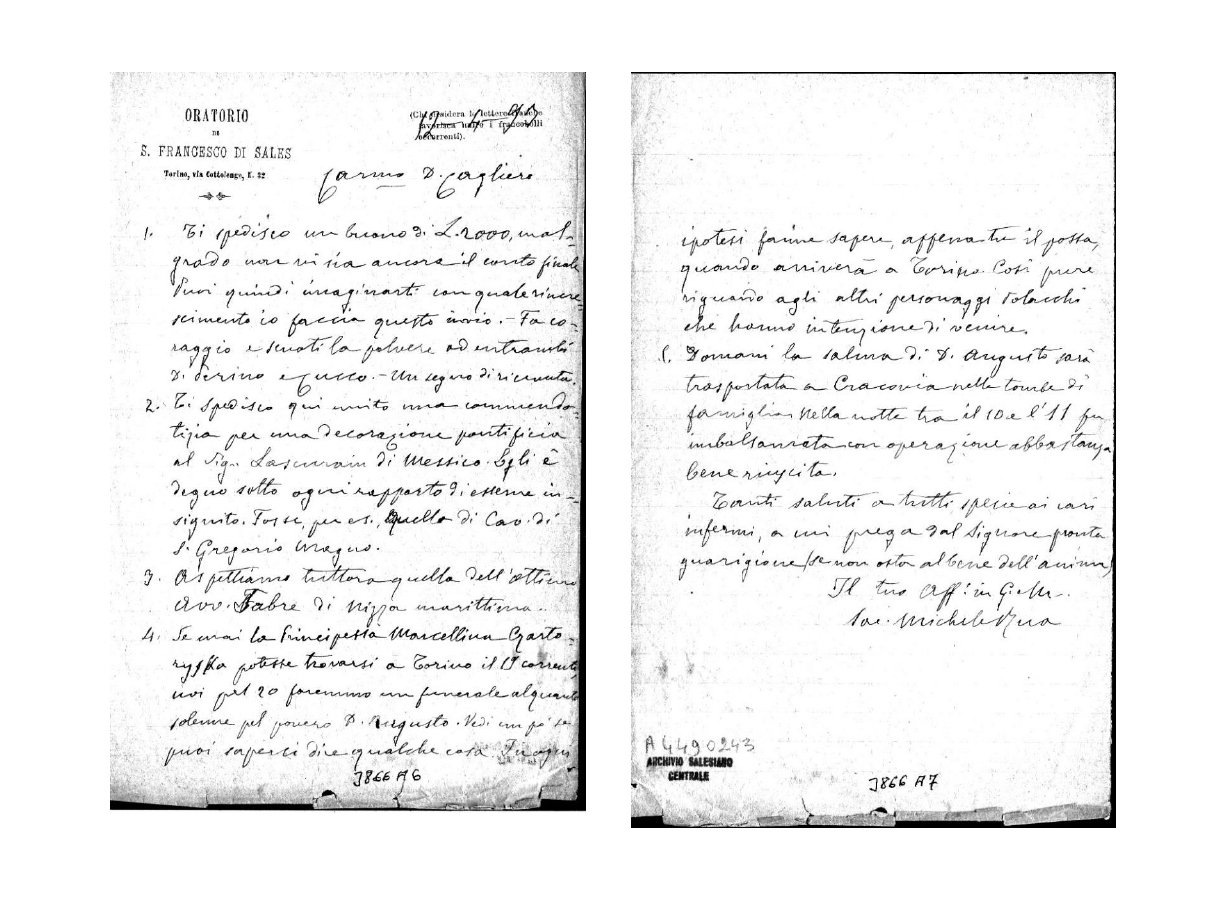 ORATORIO
DI
S. FRANCESCO DI SALES
Torino, via Cottolengo, N. 32
(Chi desidera le lettere franche
favorisca unire i francobolli
occorrenti).
Carmo D. Cagliero
1. Ti spedisco un buono di L. 2000, mal-
grado non vi sia ancora il conto finale
Puoi quindi imaginarti con quale rincre-
scimento io faccia questo invio. - Fa co-
raggio e scuoti la polvere ad entrambi
D. Perino e Cucco. - Un segno di ricevuta.
2. Ti spedisco qui unito una commenda-
tizia per una decorazione pontificia
al Sig. Lascurain di Messico. Egli è
degno sotto ogni rapporto di esserne in-
signito. Fosse, per es., quella di Cav. di
S. Gregorio Magno.
3. Aspettiamo tuttora quella dell'ottimo
Avv. Fabre di Nizza marittima.
4. Se mai la Principessa Marcellina Czarto-
ryska potesse trovarsi a Torino il 19 corrente,
noi pel 20 faremmo un funerale alquanto
solenne pel povero D. Augusto. Vedi un po' se
puoi saperci dire qualche cosa. In ogni
J866 A6
ipotesi fanne sapere, appena tu il possa,
quando arriverà a Torino. Così pure
riguardo agli altri personaggi Polacchi
che hanno intenzione di venire.
Domani la salma di D. Augusto sarà
trasportata a Cracovia nelle tombe di
famiglia. Nella notte tra il 10 e l'11 fu
imbalsamata con operazione abbastanza
bene riuscita.
Tanti saluti a tutti specie ai cari
infermi, a cui prega dal Signore pronta
guarigione (se non osta al bene dell'anima)
Il tuo Aff. in G. e M.
Sac. Michele Rua
A4490243
ARCHIVIO SALESIANO
CENTRALE
J866 A7